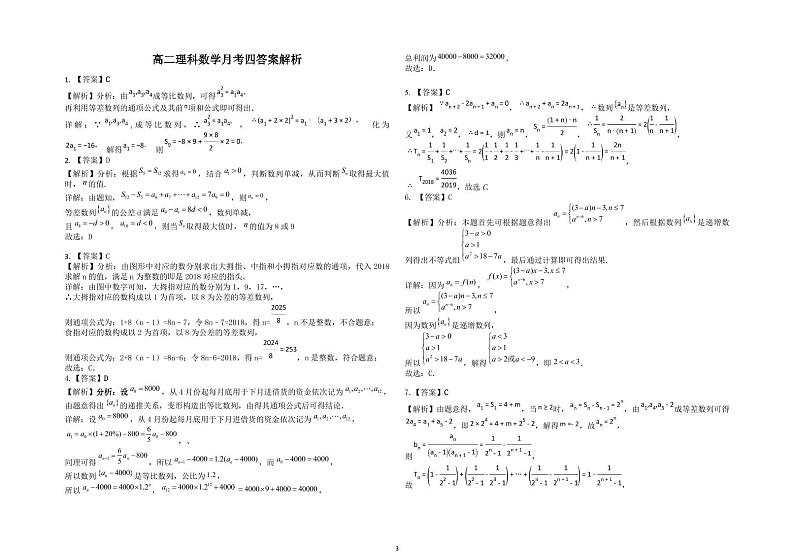 高二理科数学月考四答案解析
1. 【答案】C
【解析】分析:由a₁,a₃,a₄成等比数列,可得a₃²=a₁a₄,
再利用等差数列的通项公式及其前n项和公式即可得出.
详解:∵a₁,a₃,a₄,成等比数列,∴a₃²=a₁a₄,∴(a₁+2×2)²=a₁·(a₁+3×2),化为
2a₁=-16,解得a₁=-8. 则S₉=-8×9+(9×8)/2×2=0,
2. 【答案】D
【解析】分析:根据S₅=S₁₂求得a₉=0,结合a₁>0,判断数列单减,从而断Sₙ取得最大值
时,n的值.
详解:由题知,S₁₂-S₅=a₆+a₇+⋯+a₁₂=7a₉=0,则a₉=0,
等差数列{aₙ}的公差d满足a₉-a₁=8d<0,数列单减,
且a₈=-d>0,a₁₀=d<0,则当Sₙ取得最大值时,n的值为8或9
故选:D
3. 【答案】C
【解析】分析:由图形中对应的数分别求出大拇指、中指和小拇指对应数的通项,代入2018
求解n的值,满足n为整数的即是2018对应的指头.
详解:由图中数字可知,大拇指对应的数分别为1,9,17,…,
∴大拇指对应的数构成以1为首项,以8为公差的等差数列,
则通项公式为:1+8(n﹣1)=8n﹣7,令8n﹣7=2018,得n=2025/8,n不是整数,不合题意;
食指对应的数构成以2为首项,以8为公差的等差数列,
则通项公式为:2+8(n﹣1)=8n-6;令8n-6=2018,得n=2024/8=253,n是整数,符合题意;
故选:C.
4.【答案】D
【解析】分析:设a₀=8000,从4月份起每月底用于下月进借货的资金依次记为a₁,a₂,⋯,a₁₂,
由题意得出{aₙ}的递推关系,变形构造出等比数列,由得其通项公式后可得结论.
详解:设a₀=8000,从4月份起每月底用于下月进借货的资金依次记为a₁,a₂,⋯,a₁₂,
a₁=a₀×(1+20%)-800=6/5a₀-800,、
同理可得aₙ₊₁=6/5aₙ-800,所以aₙ₊₁-4000=1.2(aₙ-4000),而a₀-4000=4000,
所以数列{aₙ-4000}是等比数列,公比为1.2,
所以aₙ-4000=4000×1.2ⁿ,a₁₂=4000×1.2¹²+4000=4000×9+4000=40000,
总利润为40000-8000=32000.
故选:D.
5. 【答案】C
【解析】∵aₙ₊₂-2aₙ₊₁+aₙ=0,∴aₙ₊₂+aₙ=2aₙ₊₁,∴数列{aₙ}是等差数列,
又a₁=1,a₂=2,∴d=1,则aₙ=n,Sₙ=(1+n)·n/2,∴1/Sₙ=2/(n·(n+1))=2(1/n-1/(n+1))
∴Tₙ=1/S₁+1/S₂+⋯+1/Sₙ=2(1/1-1/2+1/2-1/3+⋯+1/n-1/(n+1))=2(1-1/(n+1))=2n/(n+1),
∴T₂₀₁₈=4036/2019,故选C.
6. 【答案】C
【解析】分析:本题首先可根据题意得出aₙ={(3-a)n-3,n≤7 aⁿ⁻⁶,n>7,然后根据数列{aₙ}是递增数
列得出不等式组{3-a>0 a>1 a²>18-7a,最后通过计算即可得出结果.
详解:因为aₙ=f(n),f(x)={(3-a)x-3,x≤7 aˣ⁻⁶,x>7,
所以aₙ={(3-a)n-3,n≤7 aⁿ⁻⁶,n>7,
因为数列{aₙ}是递增数列,
所以{3-a>0 a>1 a²>18-7a,解得{a<3 a>1 a>2或a<-9,即2<a<3.
故选:C.
7. 【答案】C
【解析】由题意得,a₁=S₁=4+m,当n≥2时,aₙ=Sₙ-Sₙ₋₁=2ⁿ,由a₁,a₄,a₅-2成等差数列可得
2a₄=a₁+a₅-2,即2×2⁴=4+m+2⁵-2,解得m=-2,故aₙ=2ⁿ,
则bₙ=aₙ/((aₙ-1)(aₙ₊₁-1))=1/(2ⁿ-1)-1/(2ⁿ⁺¹-1),
故Tₙ=(1-1/(2²-1))+(1/(2²-1)-1/(2³-1))+⋯+(1/(2ⁿ-1)-1/(2ⁿ⁺¹-1))=1-1/(2ⁿ⁺¹-1),
3